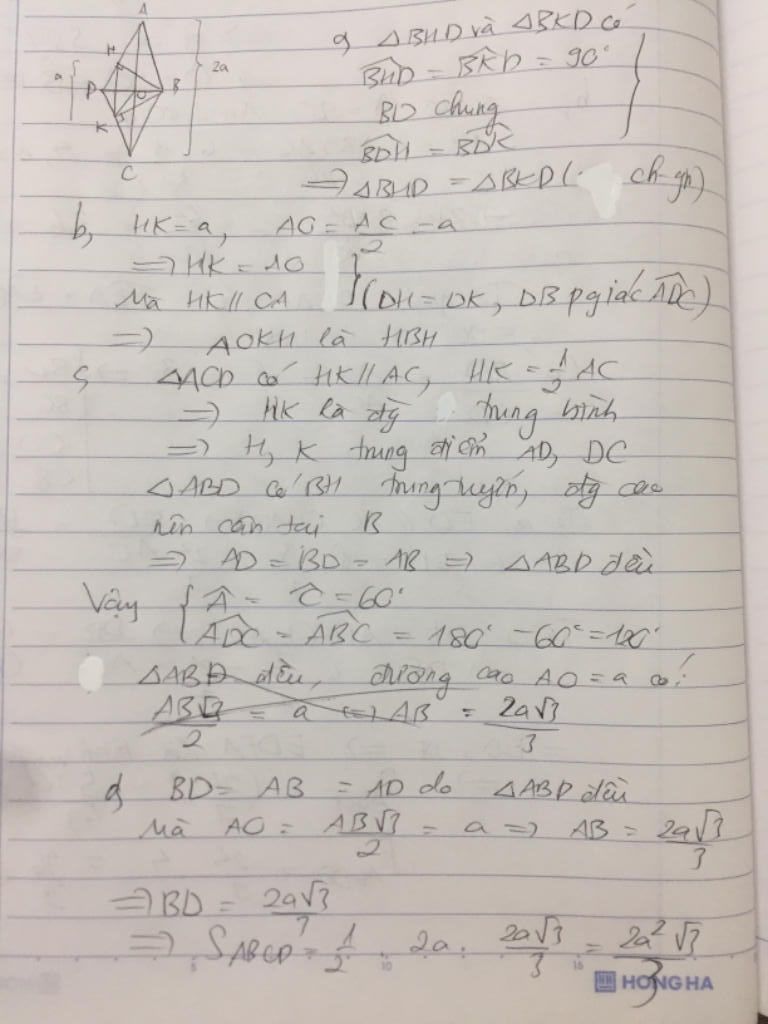 A
H
a
2a
D
O
B
K
C
a, △BHD và △BKD có
∠BHD = ∠BKD = 90°
BD chung
∠BDH = ∠BDK
=> △BHD = △BKD ( ch-gn)
b, HK = a, AO = AC/2 = a
=> HK = AO
Mà HK // CA (DH = DK, DB pgiác ∠ADC)
=> AOKH là HBH
c, △ACD có HK // AC, HK = 1/2 AC
=> HK là đg trung bình
=> H, K trung điểm AD, DC
△ABD có BH trung tuyến, đg cao
nên cân tại B
=> AD = BD = AB => △ABD đều
Vậy { Â = Ĉ = 60°
∠ADC = ∠ABC = 180° - 60° = 120°
△ABD đều, đường cao AO = a có:
AB√3/2 = a <=> AB = 2a√3/3
d, BD = AB = AD do △ABD đều
Mà AO = AB√3/2 = a => AB = 2a√3/3
=> BD = 2a√3/3
=> S ABCD = 1/2 . 2a . 2a√3/3 = 2a²√3/3
HONG HA